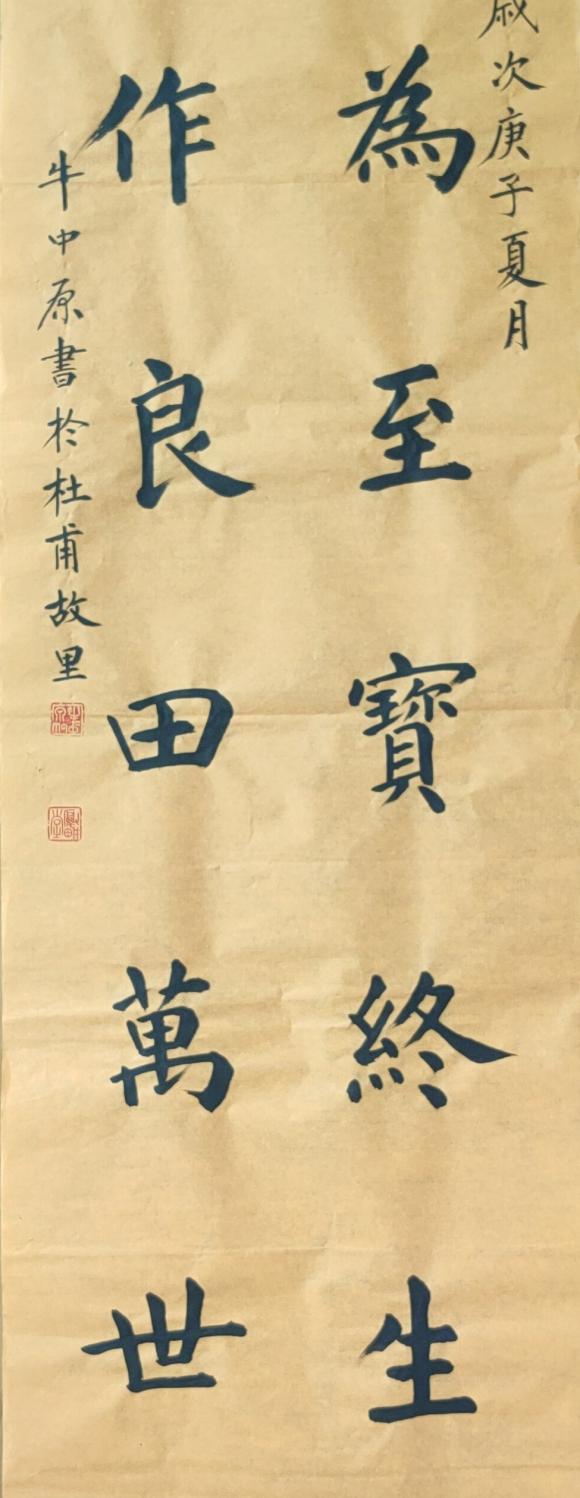 歲次庚子夏月
為至寶終生
作良田萬世
牛中原書於杜甫故里